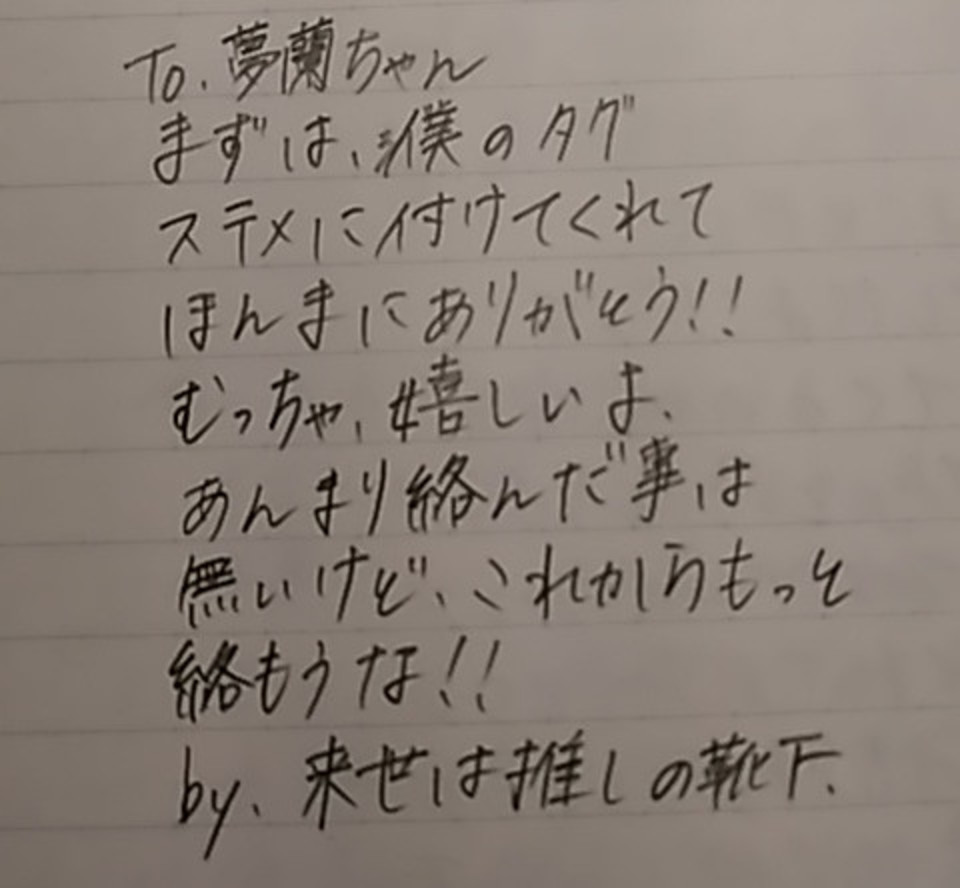 To. 夢蘭ちゃん
まずは、僕のタグ
ステメに付けてくれて
ほんまにありがとう!!
むっちゃ、嬉しいよ、
あんまり絡んだ事は
無いけど、これからもっと
絡もうな!!
by. 来世は推しの靴下.